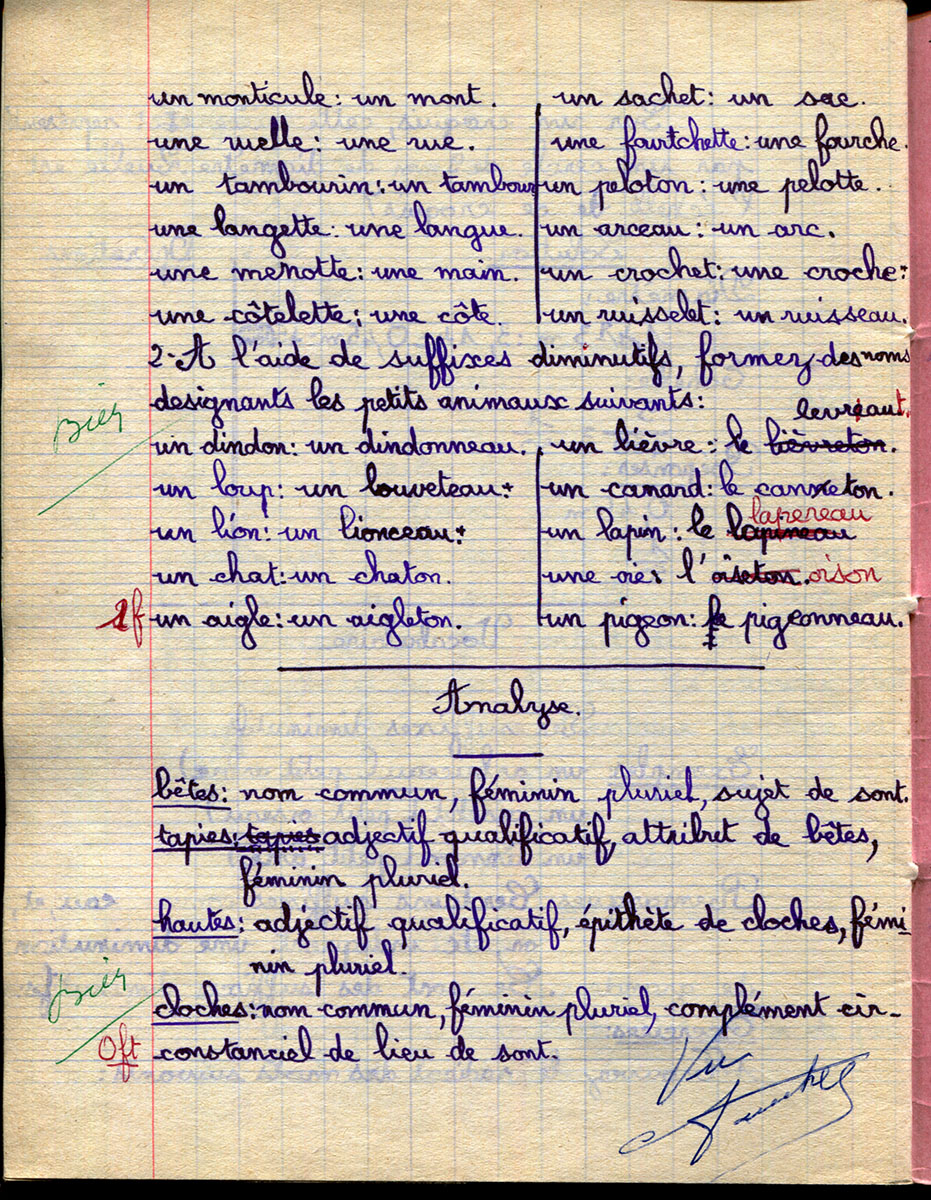 un monticule: un mont.
une ruelle: une rue.
un tambourin: un tambour
une langette: une langue.
une menotte: une main.
une côtelette: une côte.
un sachet: un sac.
une fourtchette: une fourche.
un peloton: une pelotte.
un arceau: un arc.
un crochet: une croche.
un ruisselet: un ruisseau.
2-A l'aide de suffixes diminutifs, formez des noms
designants les petits animaux suivants:
Bien
un dindon: un dindonneau.
un loup: un louveteau.
un lion: un lionceau.
un chat: un chaton.
1f un aigle: un aigleton.
levreaut.
un lièvre: le lièvreton.
un canard: le canneton.
lapereau
un lapin: le lapineau
une oie: l'oiseton. oison
un pigeon: le pigeonneau.
Analyse.
bêtes: nom commun, féminin pluriel, sujet de sont.
tapies: tapies adjectif qualificatif, attribut de bêtes,
féminin pluriel.
hautes: adjectif qualificatif, épithète de cloches, fémi-
nin pluriel.
Bien
cloches: nom commun, féminin pluriel, complément cir-
0ft constanciel de lieu de sont.
Vu